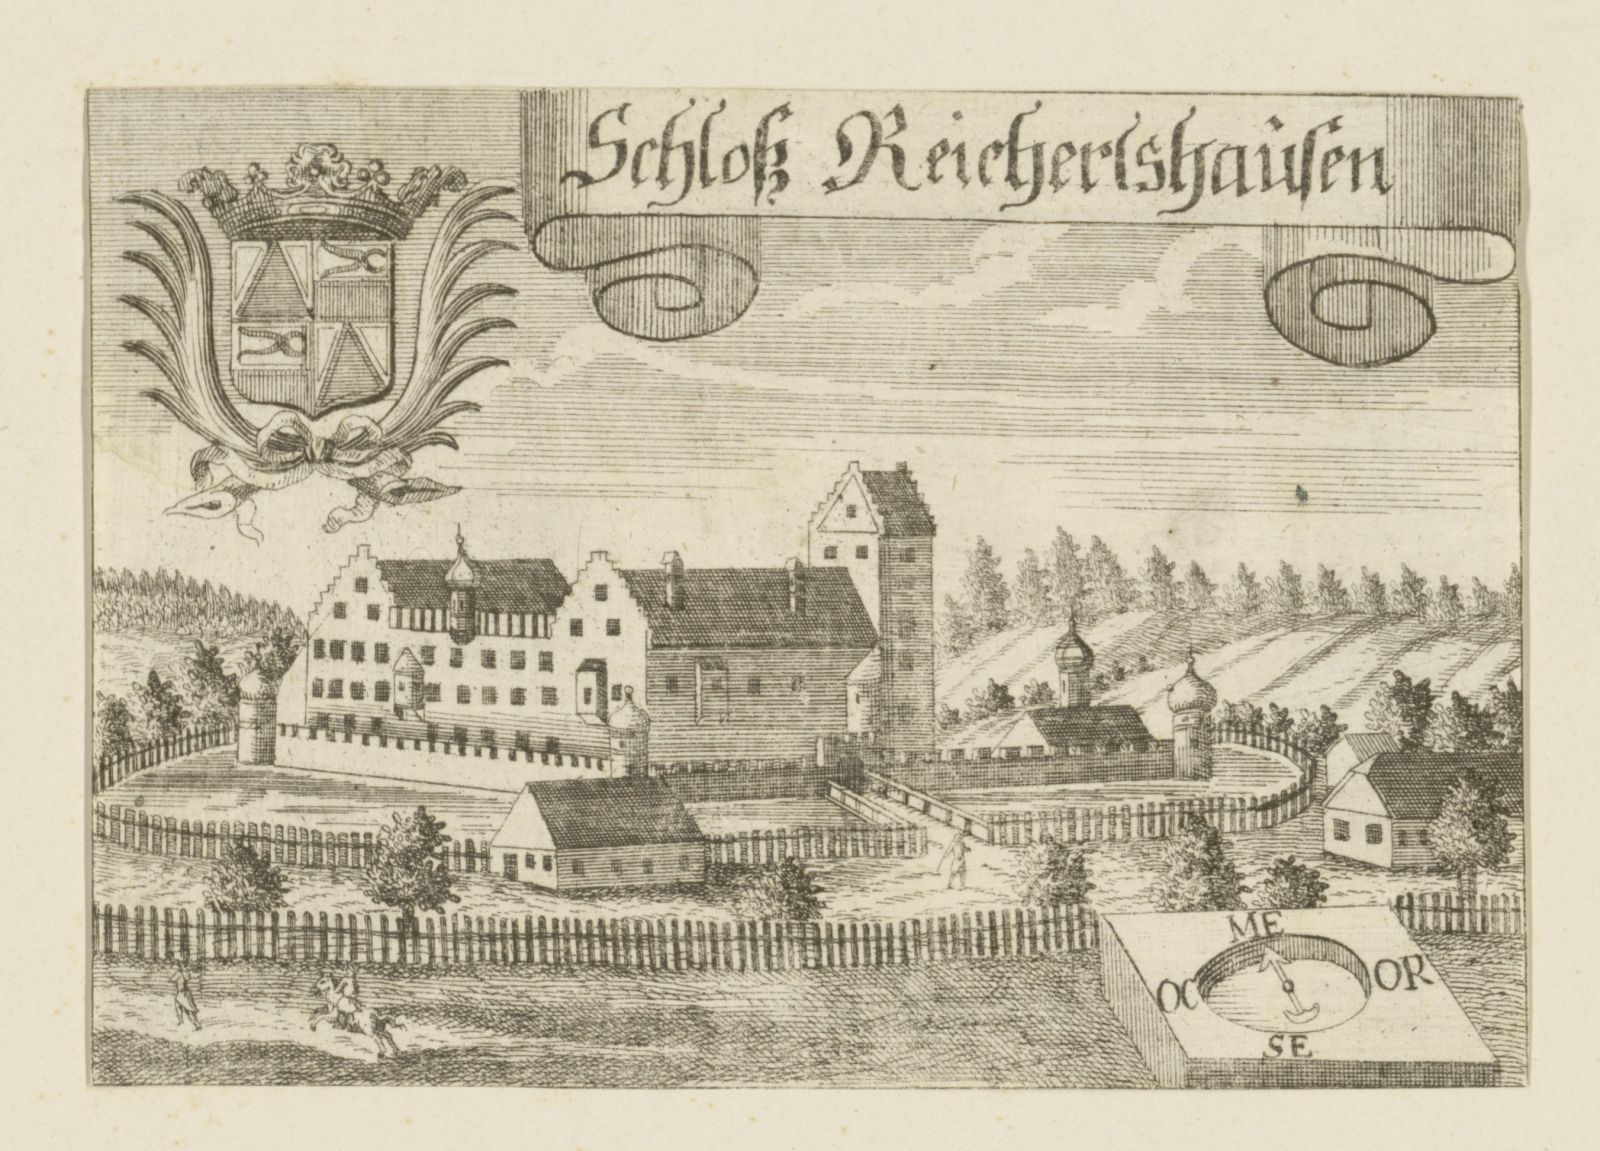 Schloß Reichertshausen
ME
OC OR
SE